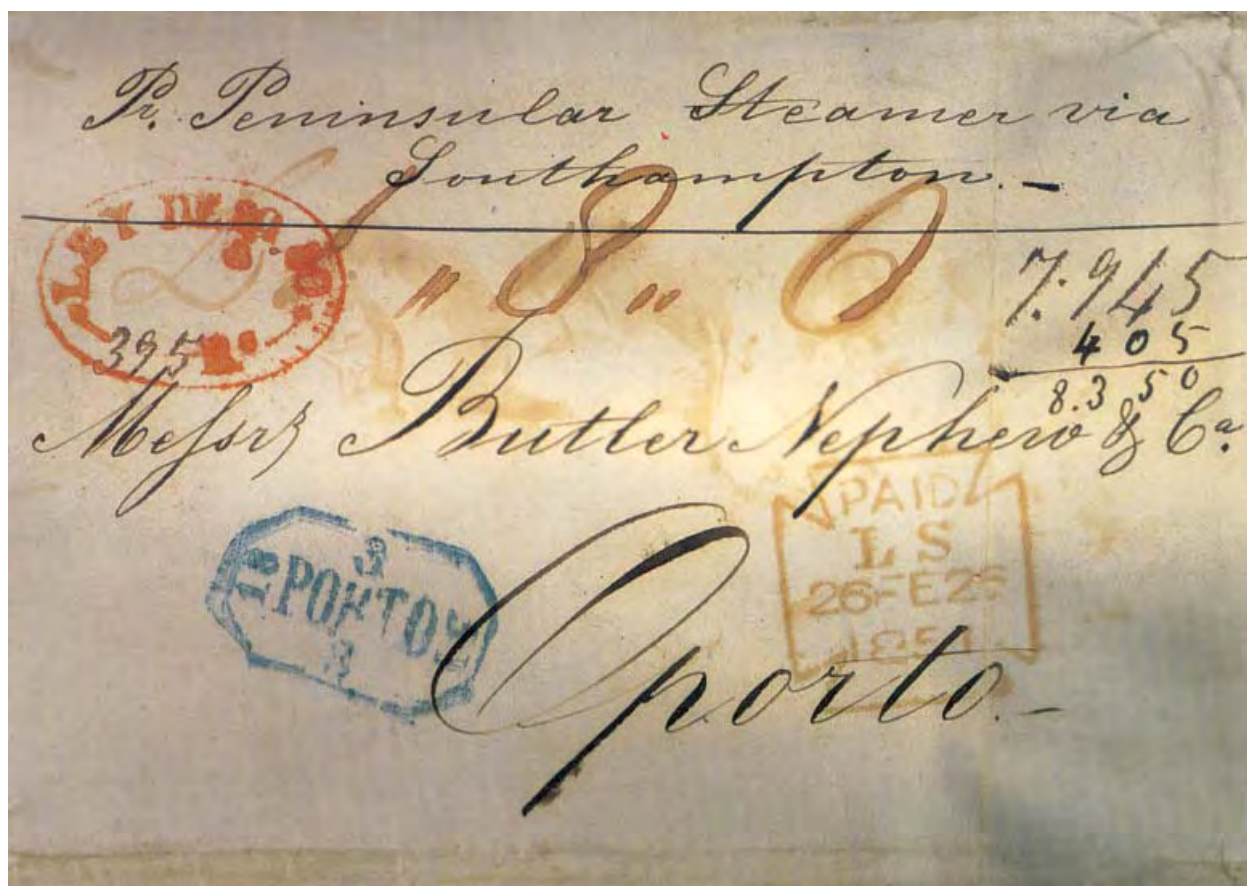 Pr. Peninsular Steamer via
Southampton. -
1 " 8 " 6
7.945
405
8.350
395
R.
Messrs Butler Nephew & Ca.
PAID
L S
26 FE 26
185
3
PORTO
3
Oporto. -